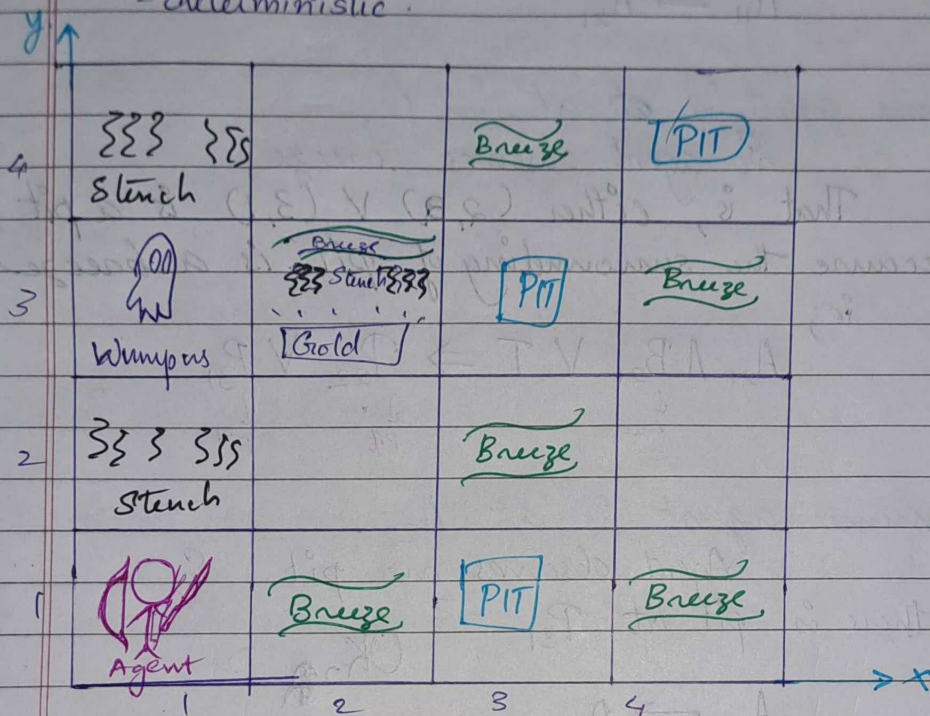 -deterministic.
y
4
Stench
Breeze
PIT
3
Wumpus
Breeze
Stench
Gold
PIT
Breeze
2
Stench
Breeze
1
Agent
Breeze
PIT
Breeze
x
1 2 3 4